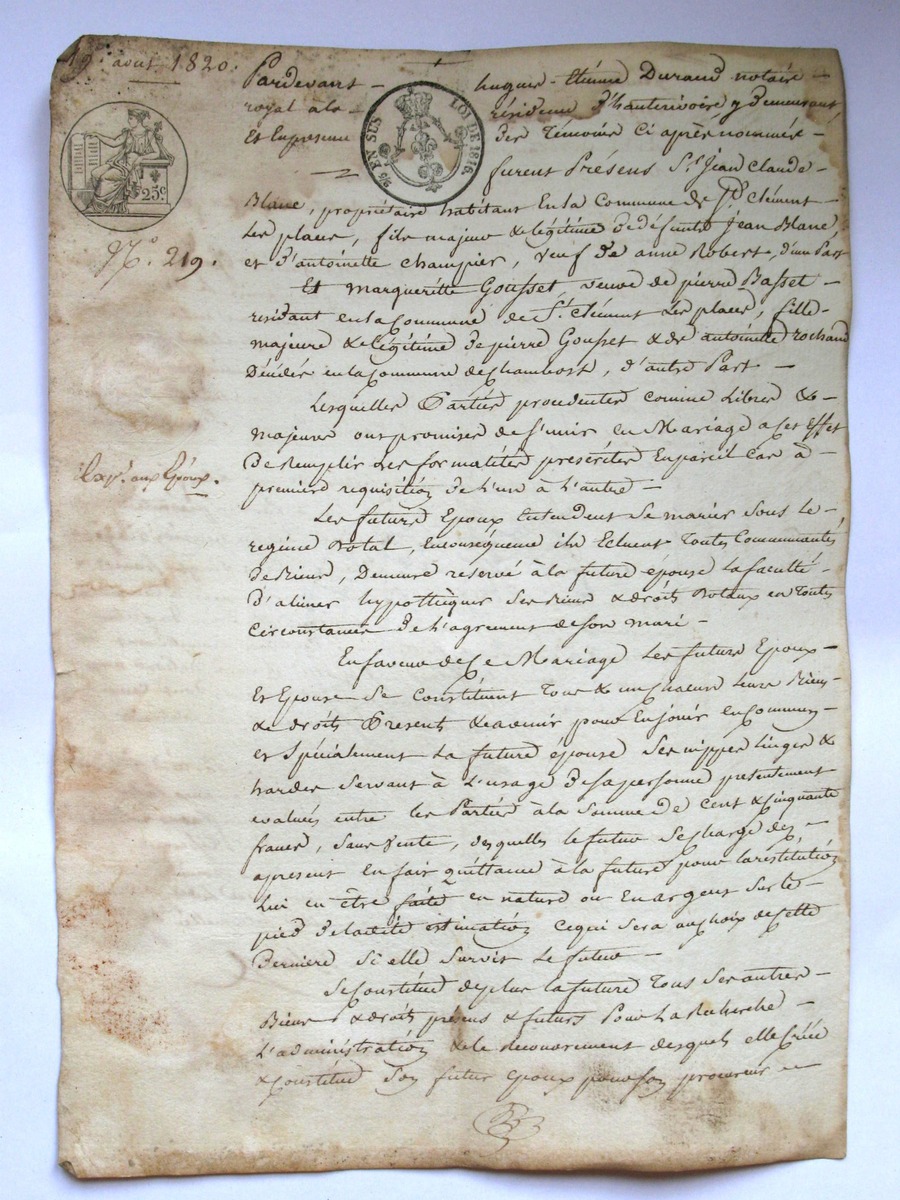 19. aout 1820.
Pardevant hugues-Etienne Durand notaire
royal à la résidence d'hauterivoire y demeurant
Et En presence des Témoins Ci après nommés
furent Présens Sr. Jean Claude
Blanc, propriétaire habitant En la Commune de St. Clément
Les places, fils majeur & légitime de défunts Jean Blanc,
et d'antoinette Champier, veuf de anne Robert, d'une Part
Et margueritte Gousset, veuve de pierre Basset
residant en la Commune de St. Clément Les places, fille
majeure & légitime de pierre Gousset & de antoinette rochand
Décédés en la Commune de Chambost, d'autre Part
Lesquelles Parties procedentes comme Libres &
majeures ont promises de s'unir en Mariage a cet Effet
De Remplir Les formalités prescrites En pareil Cas à
premiere requisition de l'un à l'autre
Les futurs Epoux Entendent se marier sous Le
regime Dotal, En conséquence ils Ecluent Toutes Communautés
de Biens, Demeure réservé à la future épouse La faculté
D'aliener hypothéquer Ses Biens & droits Dotaux en Toutes
Circonstances de l'agrement de son mari
En faveur de Ce Mariage Les futurs Epoux
Et Epouse Se Constituent Tous & un chacuns Leurs Biens
& droits Présents & à venir pour En jouir en Commun
et Spécialement La future épouse Ses nippes linges &
hardes Servant à L'usage de sa personne presentement
evalués entre les Parties à la somme de Cent & Cinquante
francs, Sans Vente, desquelles le futur Se charge dès
apresent en fait quittance à la future pour la restitution
Lui en être faite en nature ou En argent Sur le
pied de la dite estimation Ce qui Sera au choix de Cette
Derniere Si elle Survit Le futur
Se Constitue de plus la future Tous Ses autres
Biens & droits présens & futurs Pour La Recherche
L'administration & le recouvrement desquels elle Crée
& Constitue Son futur époux pour son procureur
EN SUS
LOI DE 1816.
25.c
No. 219.
aux Epoux.